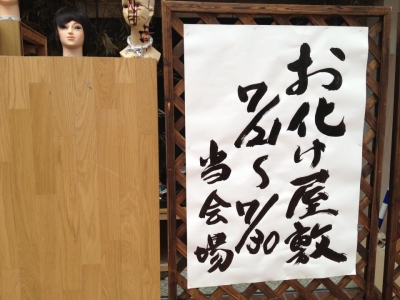 お化け屋敷
7/21〜7/30
当会場